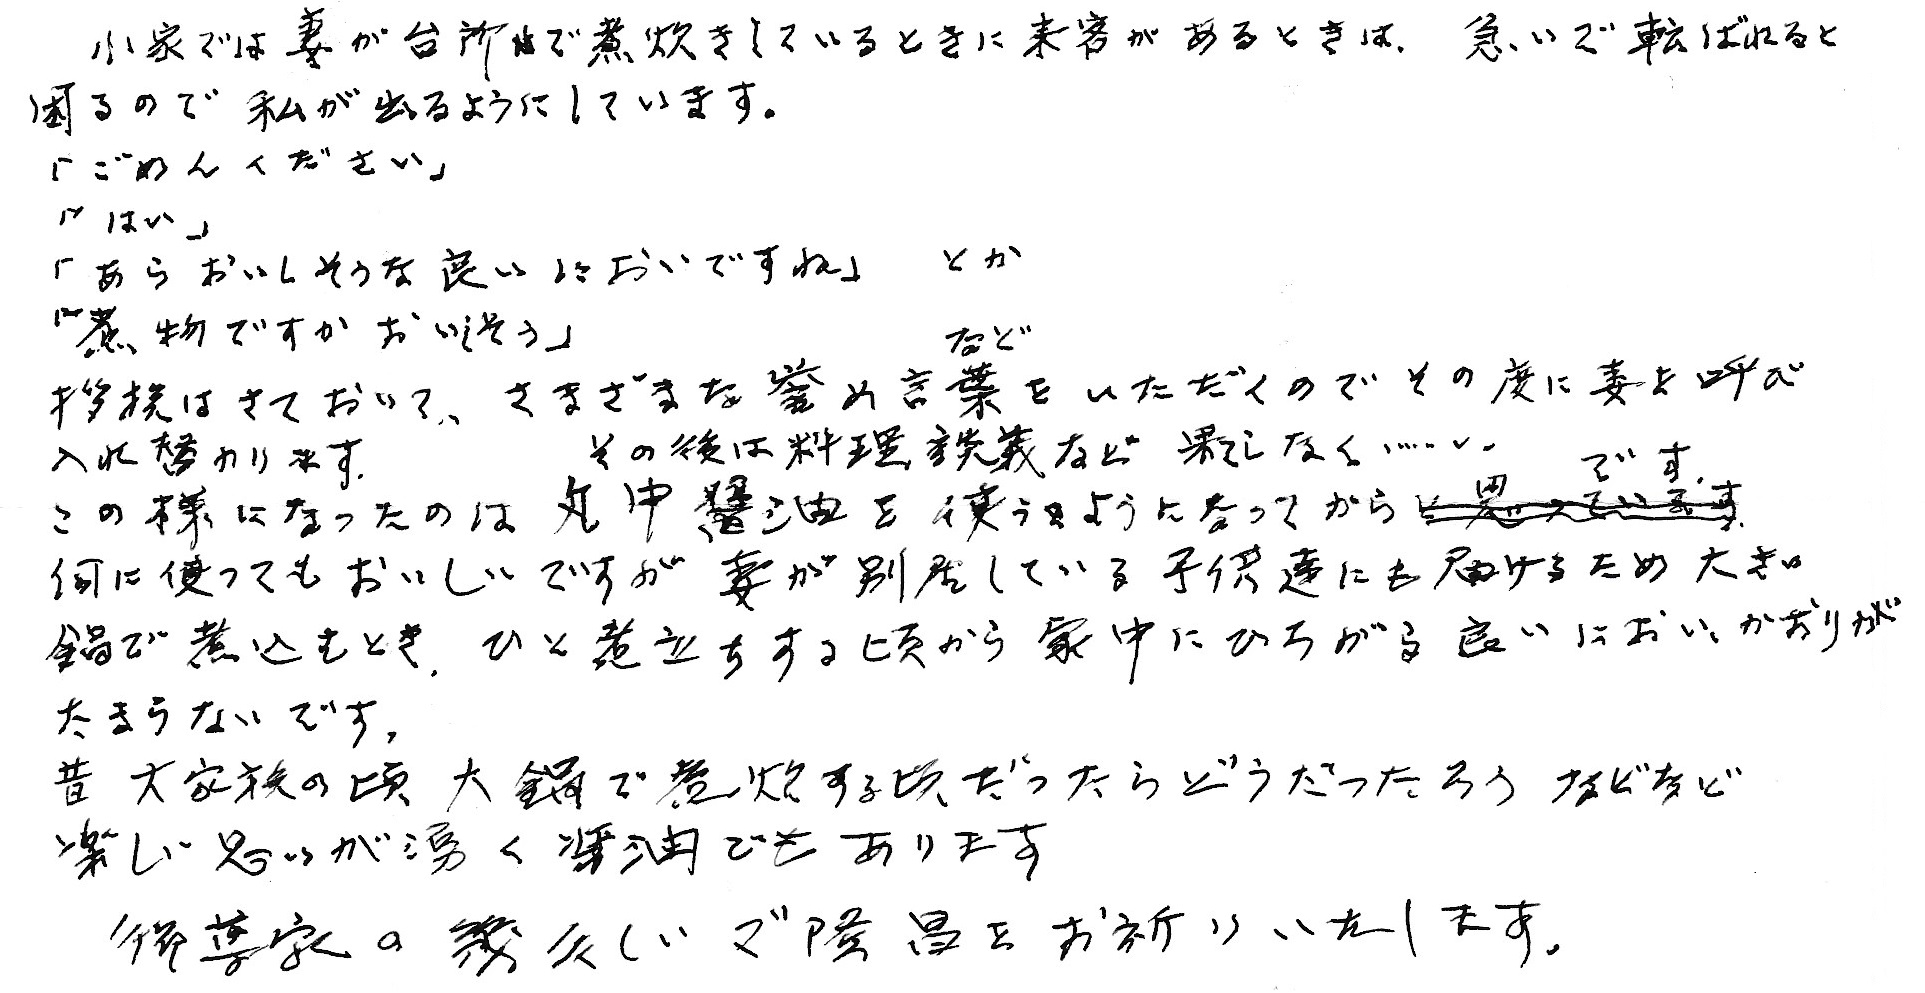 小家では妻が台所で煮炊きしているときに来客があるときは、急いで転ばれると
困るので私が出るようにしています。
「ごめんください」
「はい」
「あらおいしそうな良いにおいですね」とか
「煮物ですかおいしそう」
など
挨拶はさておいて、さまざまな誉め言葉をいただくのでその度に妻を呼び
入れ替わります。その後は料理談義など果てしなく……
です。
この様になったのは丸中醤油を使うようになってからと思っています。
何に使ってもおいしいですが妻が別居している子供達にも届けるため大きい
鍋で煮込むとき、ひと煮立ちする頃から家中にひろがる良いにおい、かおりが
たまらないです。
昔大家族の頃大鍋で煮炊する頃だったらどうだったろうなどなど
楽しい思いが湧く醤油でもあります
御尊家の幾久しいご隆昌をお祈りいたします。